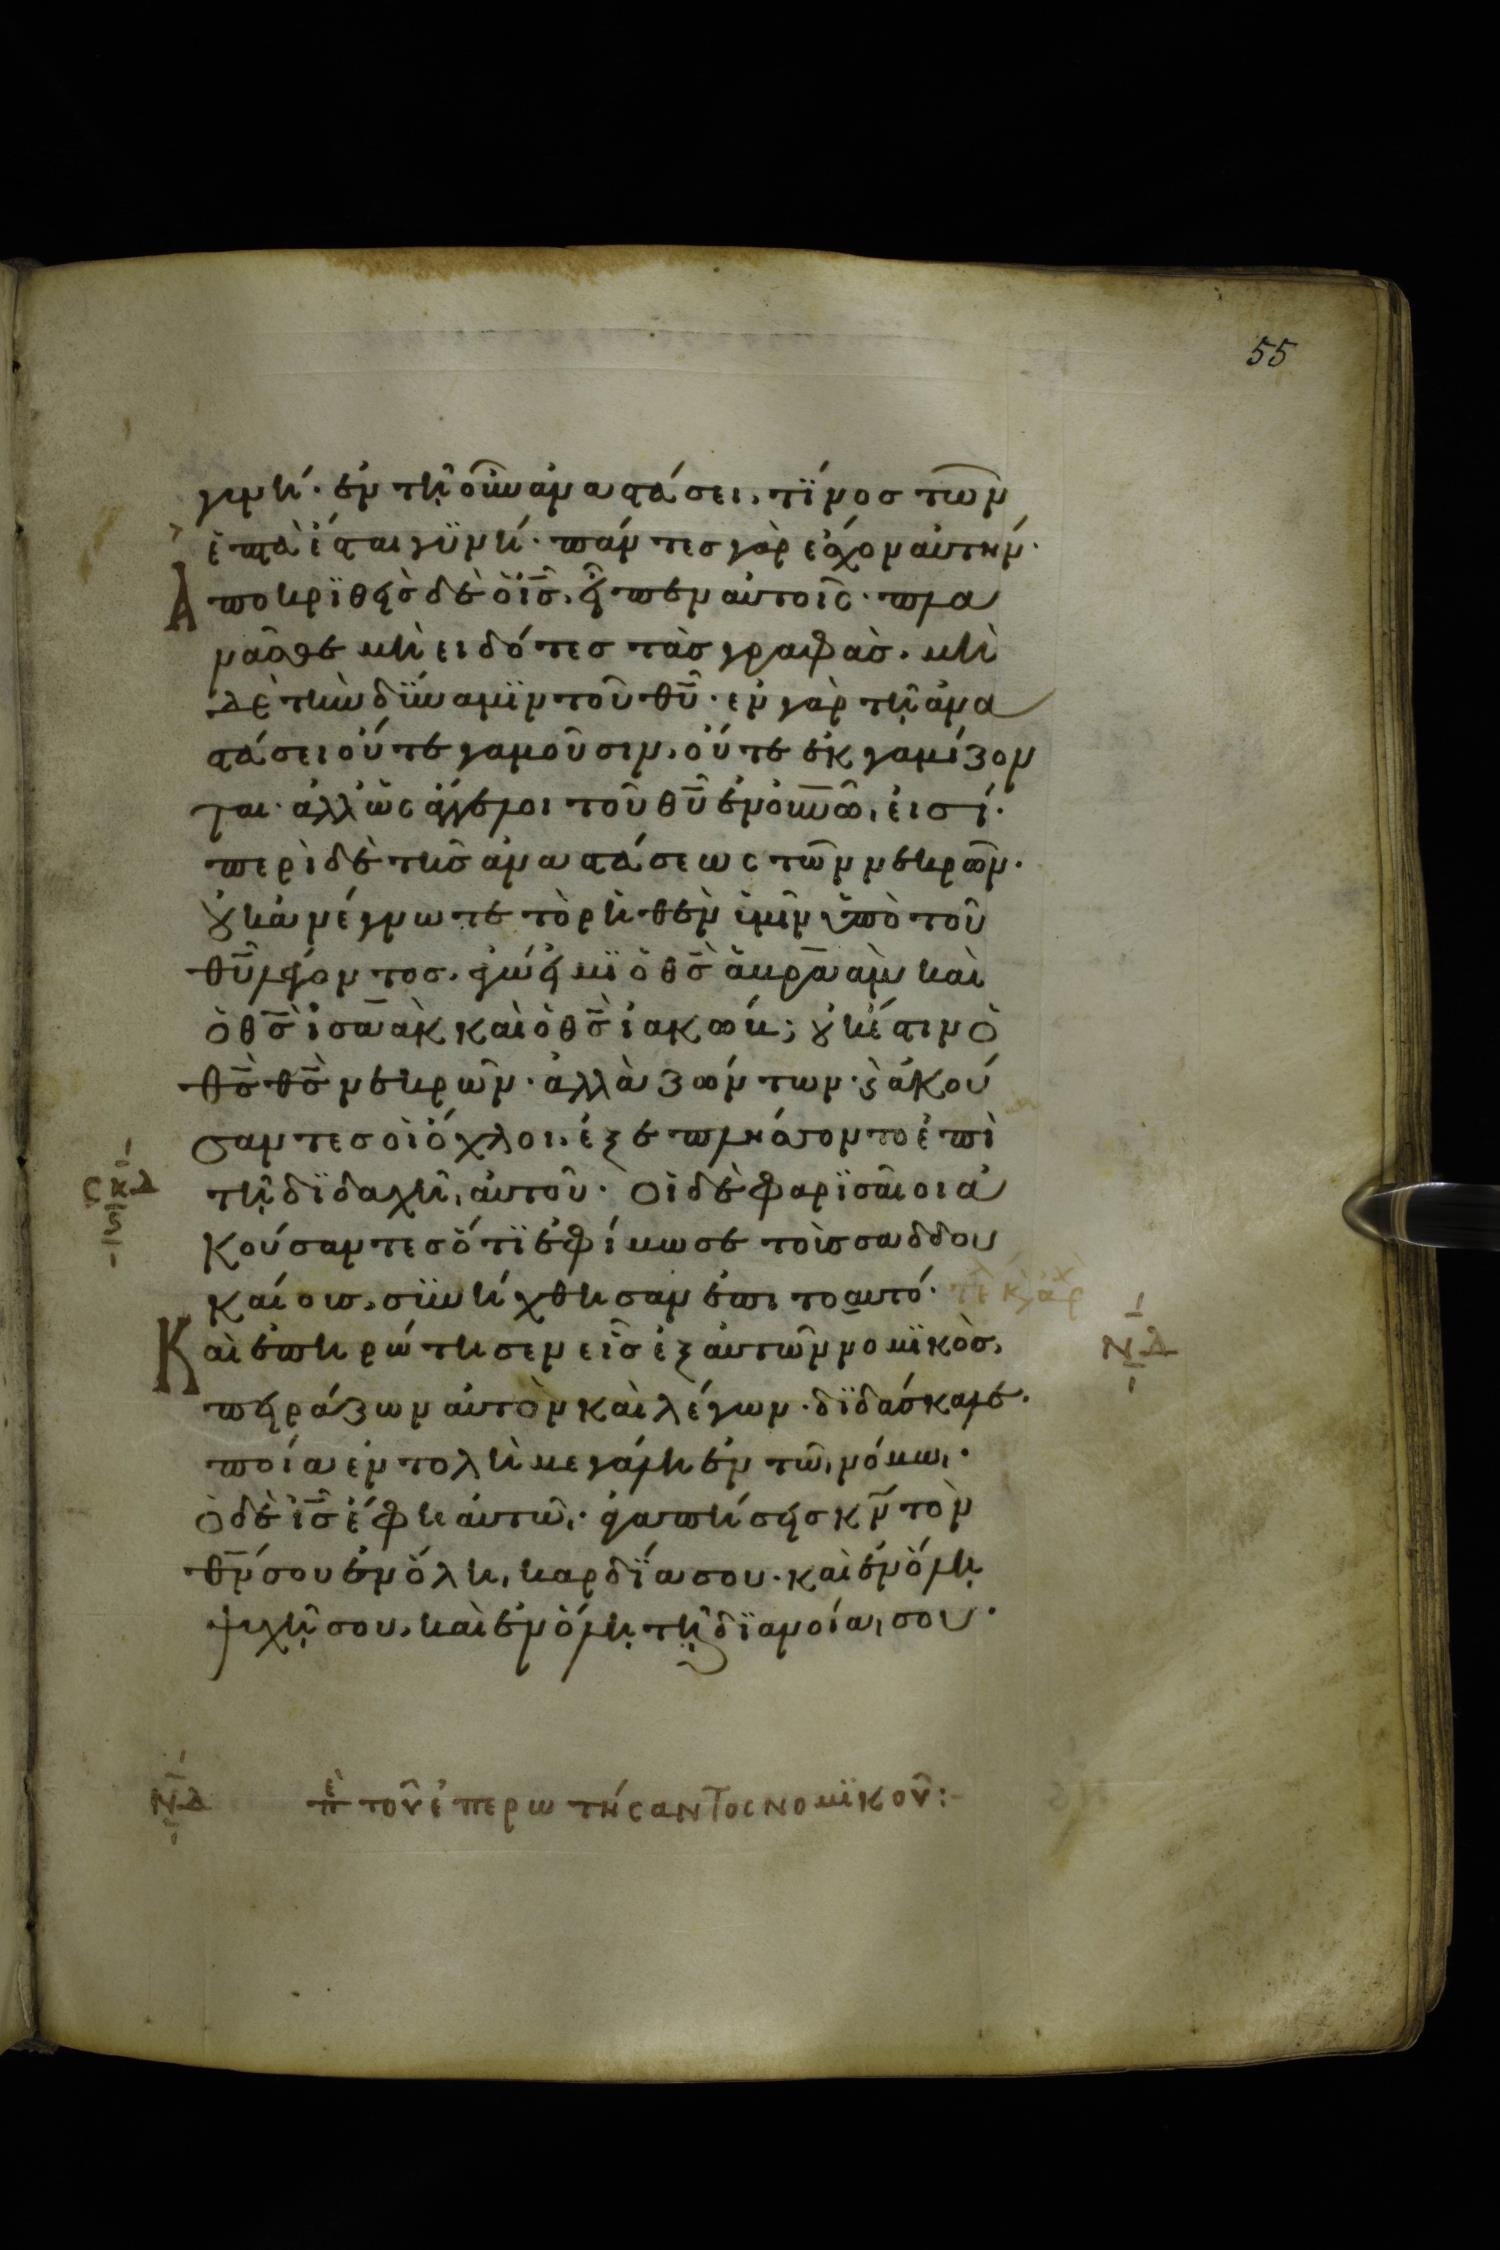 55
γυνή· ἐν τῆ οὖν ἀναστάσει, τίνος τῶν
ἑπτὰ ἔσται γϋνή· πάντες γὰρ ἔσχον αὐτήν·
Ἀποκρϊθεὶς δὲ ὁ ι̅ς̅, εἶπεν αὐτοῖς· πλα
νᾶσθε μὴ εἰδότες τὰς γραφὰς· μὴ
δὲ τὴν δύναμϊν τοῦ θ̅υ̅· ἐν γὰρ τῆ ἀνα
στάσει οὔτε γαμοῦσιν, οὔτε ἐκγαμίζον
ται· ἀλλ' ὡς ἄγγελοι τοῦ θ̅υ̅ ἐν ο̅υ̅ν̅ω̅, εἰσί·
περὶ δὲ τῆς ἀναστάσεως τῶν νεκρῶν·
οὐκ ἀνέγνωτε τὸ ρηθὲν ὑμῖν ὑπὸ τοῦ
θ̅υ̅ λέγοντος, ἐγώ εἰμϊ ὁ θ̅ς̅ ἀβραὰμ καὶ
ὁ θ̅ς̅ ἰσαὰκ καὶ ὁ θ̅ς̅ ἰακώβ; οὐκ ἔστιν ὁ
θ̅ς̅ θ̅ς̅ νεκρῶν· ἀλλὰ ζώντων· ϗ ἀκού
σαντες οἱ ὄχλοι, ἐξεπλήσσοντο ἐπὶ
τῆ δϊδαχῆ, αὐτοῦ· Οἱ δὲ φαρϊσαῖοι ἀ
κούσαντες ὅτϊ ἐφίμωσε τοὺς σαδδου
καίους, σϋνήχθησαν ἐπι το αυτό·
Καὶ ἐπηρώτησεν εἷς ἐξ αὐτῶν νομϊκὸς,
πειράζων αὐτὸν καὶ λέγων· δϊδάσκαλε·
ποία ἐντολὴ μεγάλη ἐν τῶ, νόμω,·
ὁ δὲ ι̅ς̅ ἔφη αὐτῶ,· ἀγαπήσεις κ̅ν̅ τὸν
θ̅ν̅ σου ἐν ὅλη, καρδία σου· καὶ ἐν ὅλη
ψυχῆ σου, καὶ ἐν ὅλη τῆ δϊανοία, σου·
ΣΚΔ
Ϛ
ΝΔ
ΝΔ πε τοῦ ἐπερωτήσαντος νομϊκοῦ:-